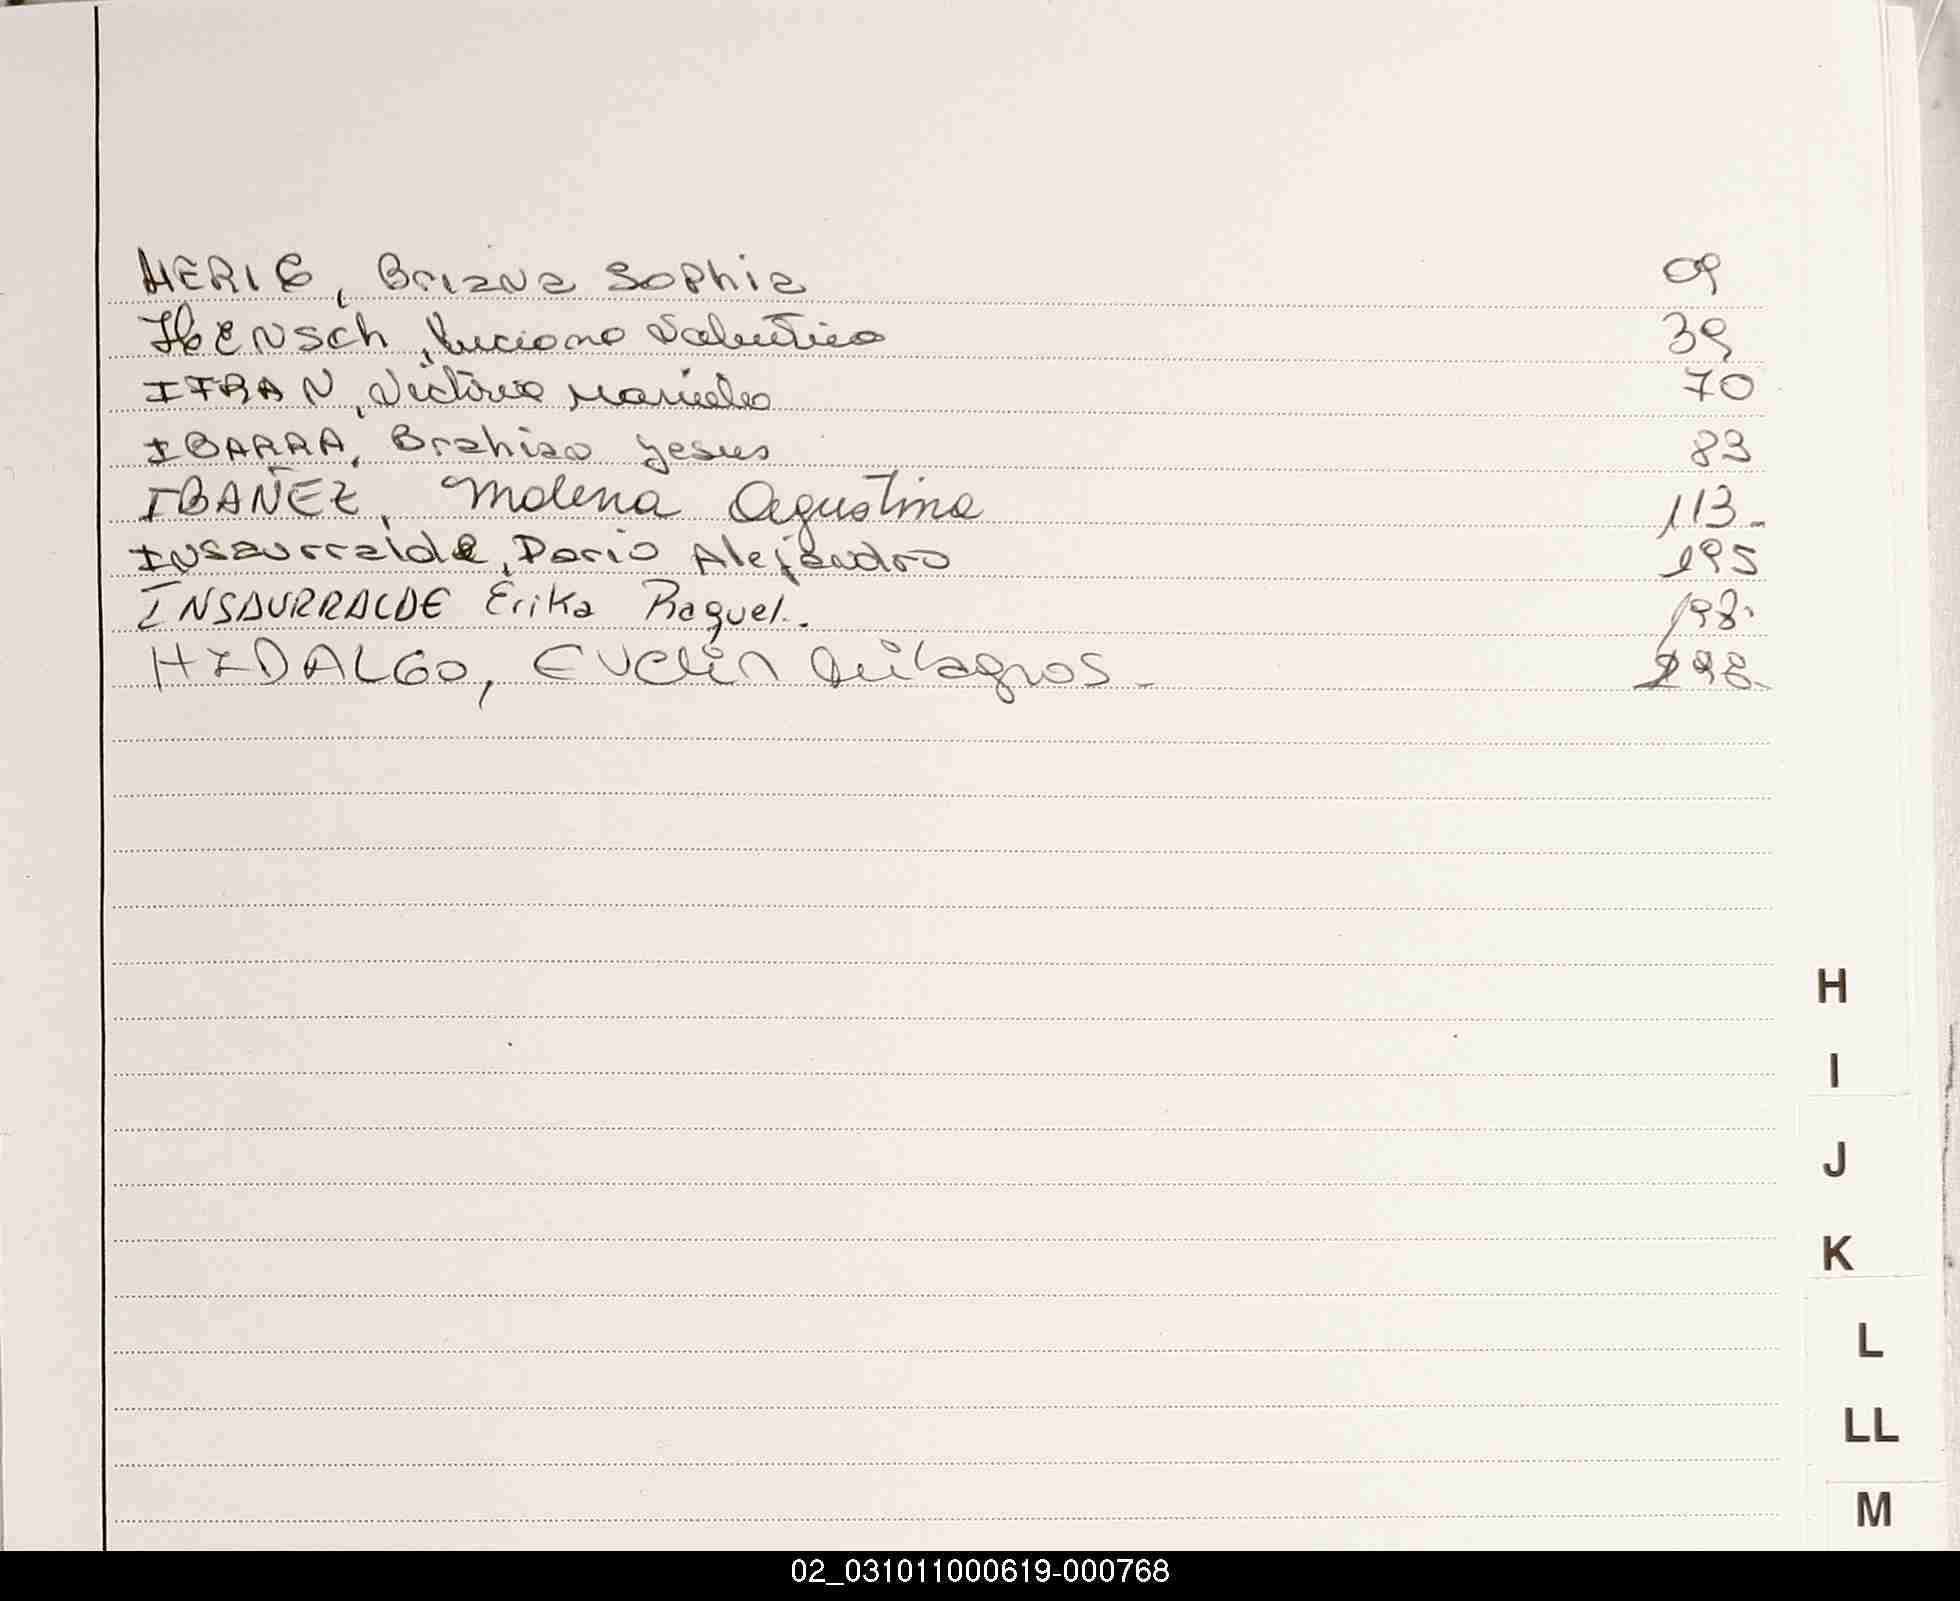 HERIG, Briana Sophia 09
HENSCH, Luciano Valentino 39
IFRAN, Victoria Mariela 70
IBARRA, Brahian Jesus 83
IBAÑEZ, Molena Agustina 113-
Insaurralde, Dario Alejandro 195
INSAURRALDE Erika Raquel. 198.
HIDALGO, Evelin Milagros - 298.
H
I
J
K
L
LL
M
02_031011000619-000768